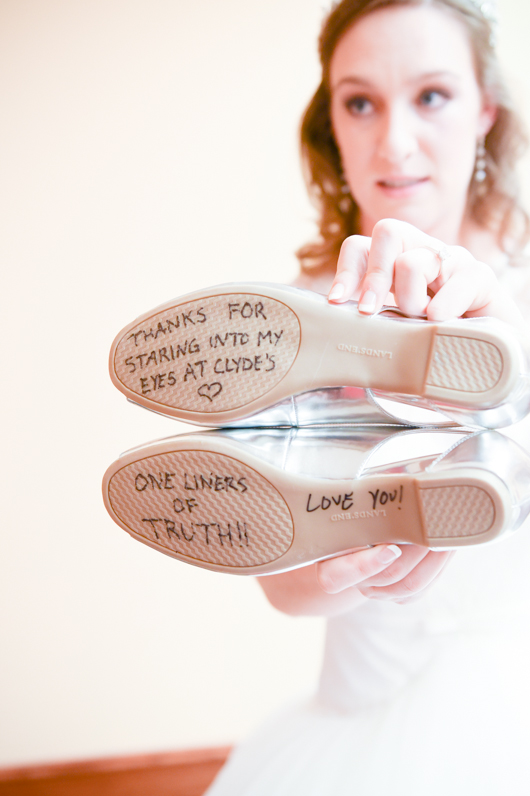 THANKS FOR
STARING INTO MY
EYES AT CLYDE'S
♡
LANDS' END
ONE LINERS
OF
TRUTH!!
LOVE YOU!
LANDS' END